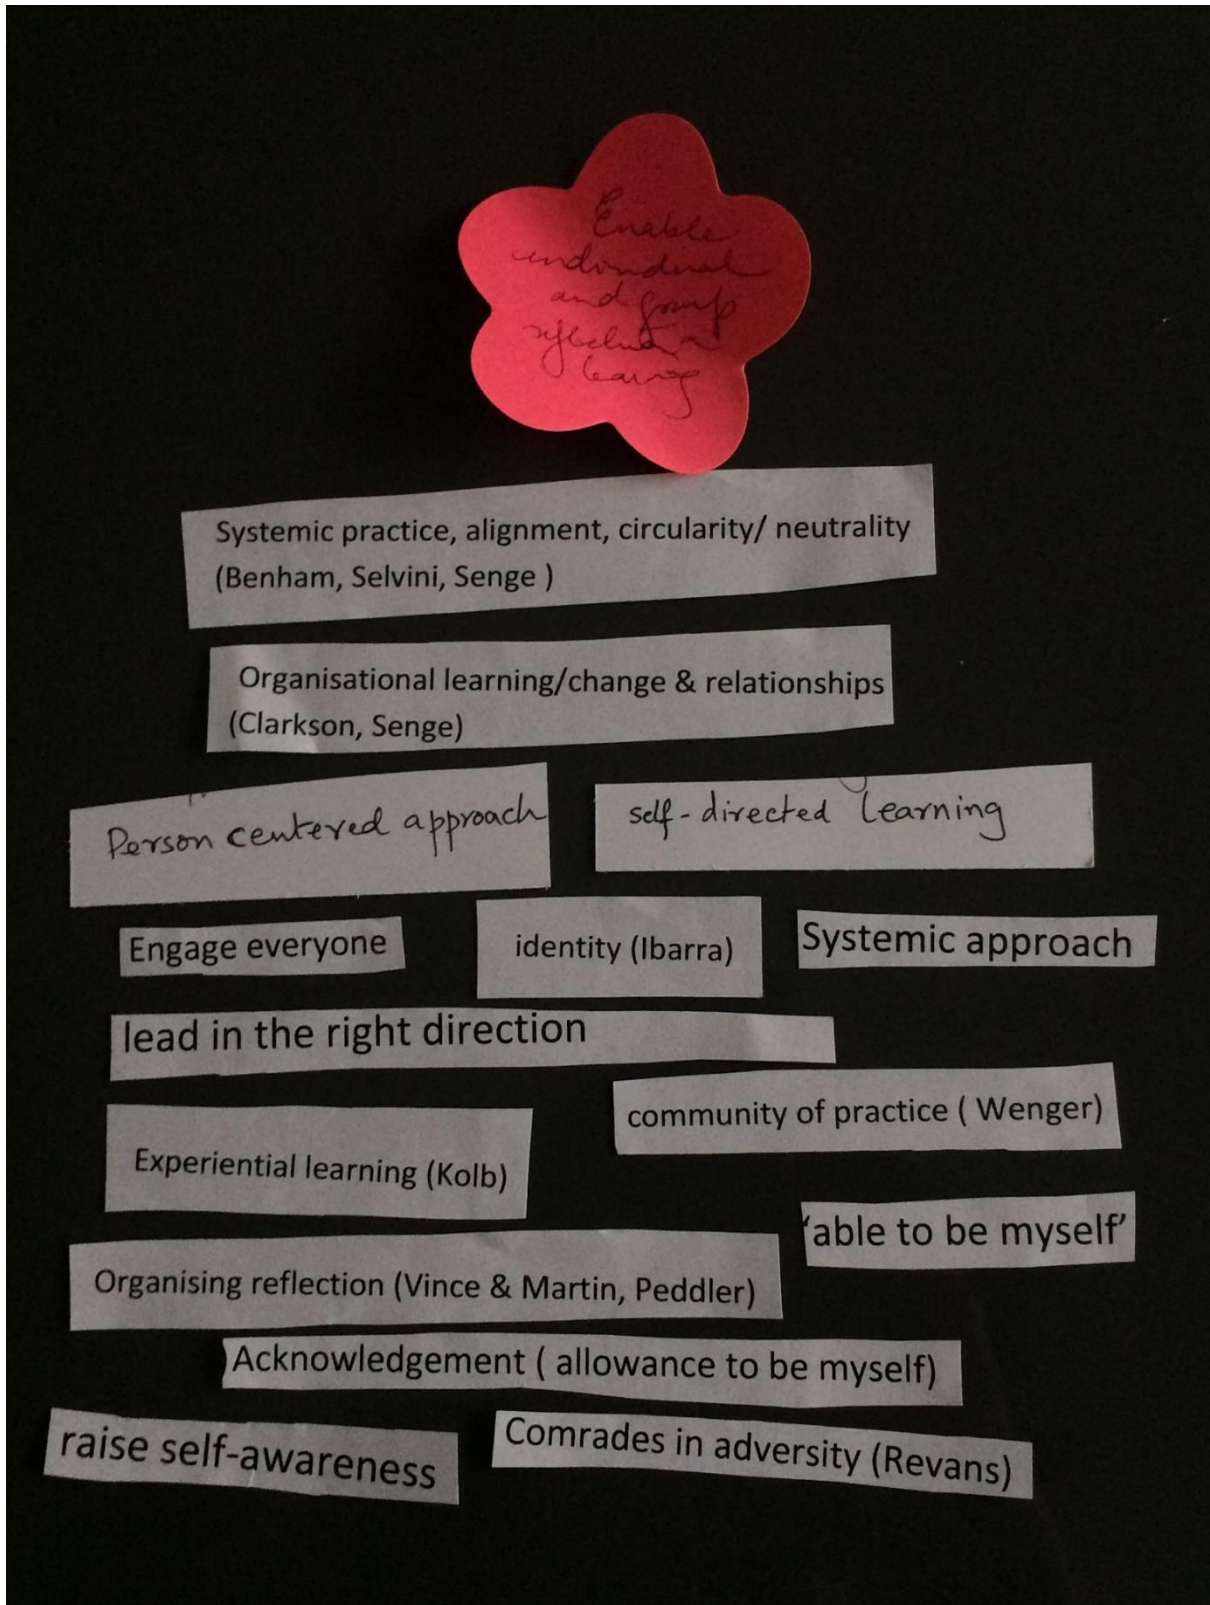 Enable
individual
and group
reflection
learning
Systemic practice, alignment, circularity/ neutrality
(Benham, Selvini, Senge )
Organisational learning/change & relationships
(Clarkson, Senge)
Person centered approach
self-directed learning
Engage everyone
identity (Ibarra)
Systemic approach
lead in the right direction
community of practice ( Wenger)
Experiential learning (Kolb)
'able to be myself'
Organising reflection (Vince & Martin, Peddler)
Acknowledgement ( allowance to be myself)
raise self-awareness
Comrades in adversity (Revans)